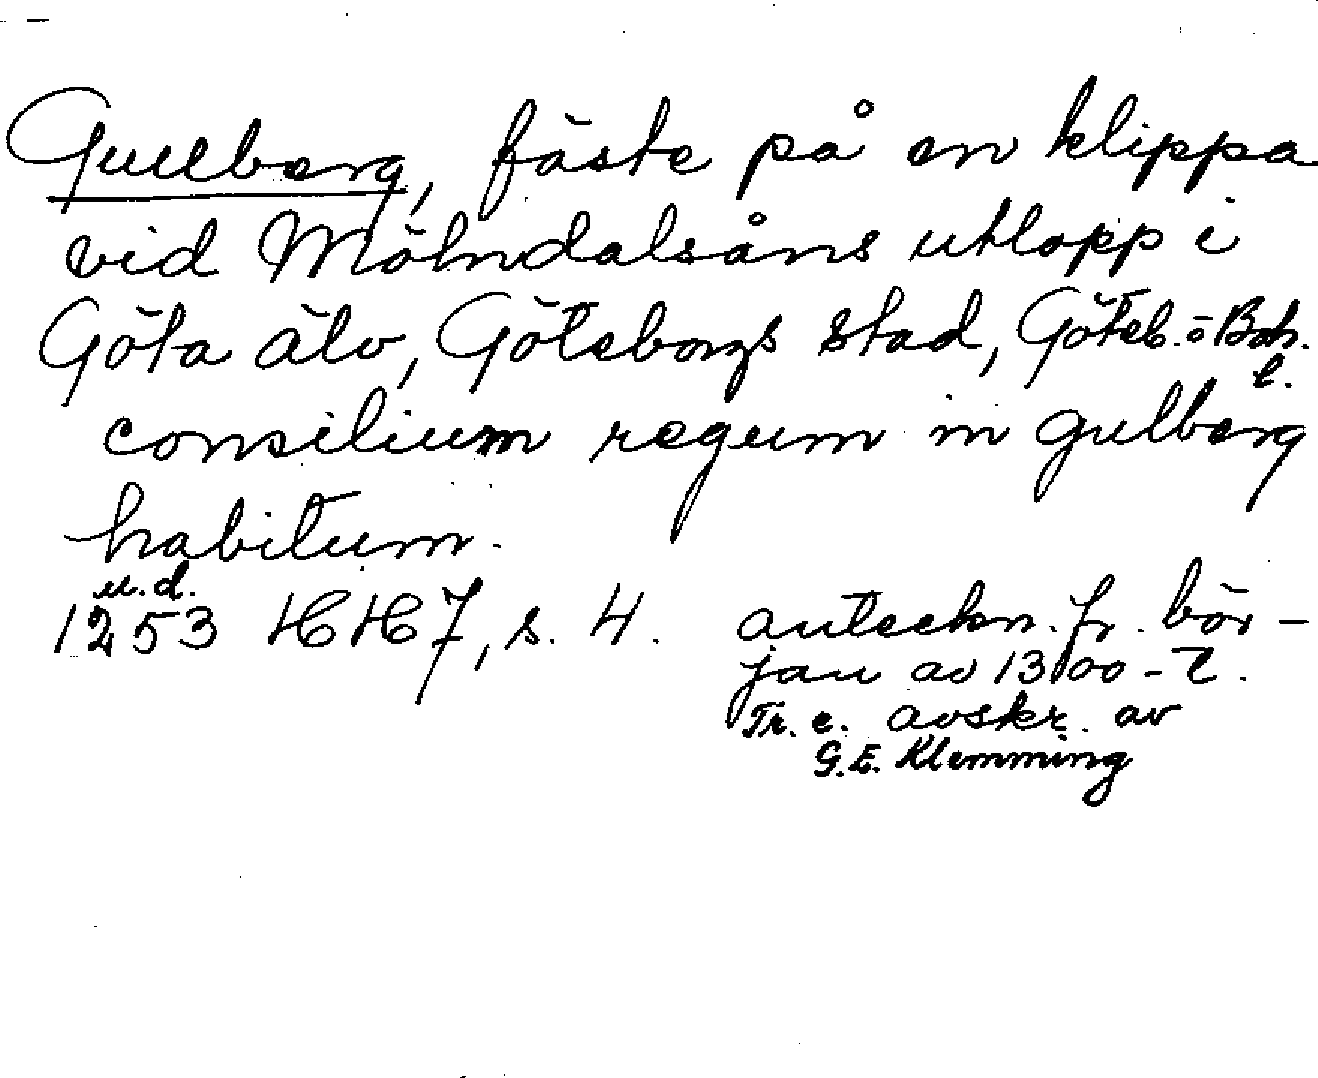 Gullberg, fäste på en klippa
vid Mölndalsåns utlopp i
Göta älv, Göteborgs stad, Göteb. o Boh.
l.
consilium regum in gulberg
habitum.
u.d.
1253 HH 7, s. 4. anteckn. fr. bör-
jan av 1300-t.
Tr. e. avskr. av
G.E. Klemming